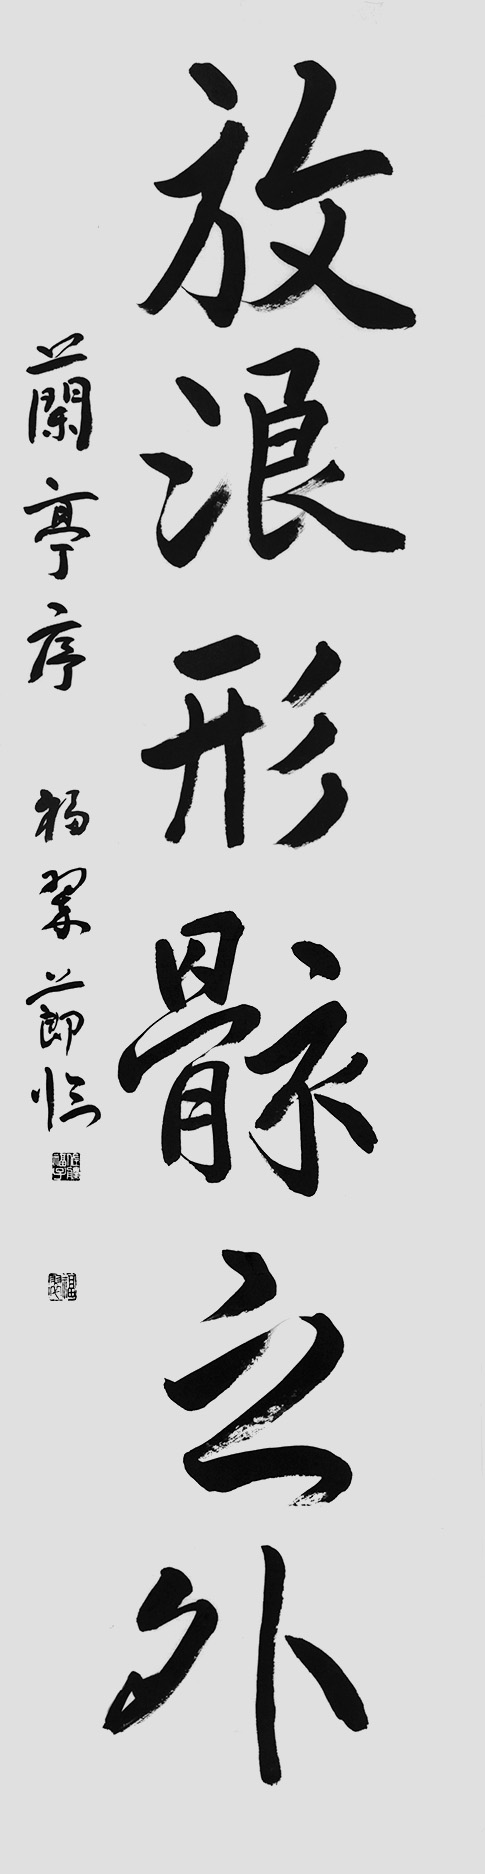 放浪形骸之外
蘭亭序 福翠節臨